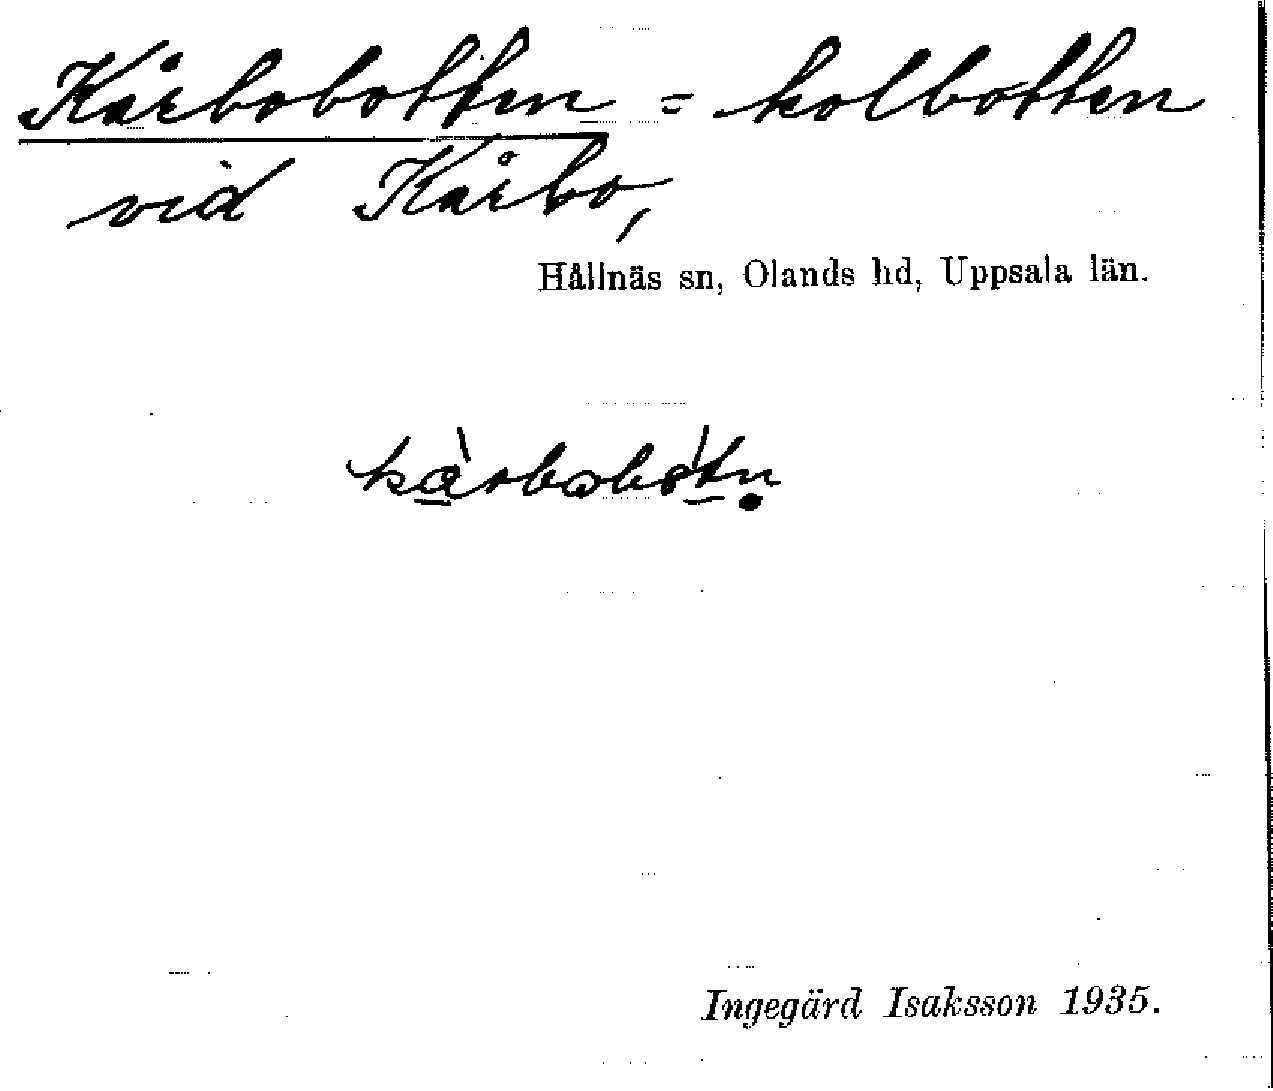 Kårbobotten = kolbotten
vid Kårbo,
Hållnäs sn, Olands hd, Uppsala län.
Ingegärd Isaksson 1935.